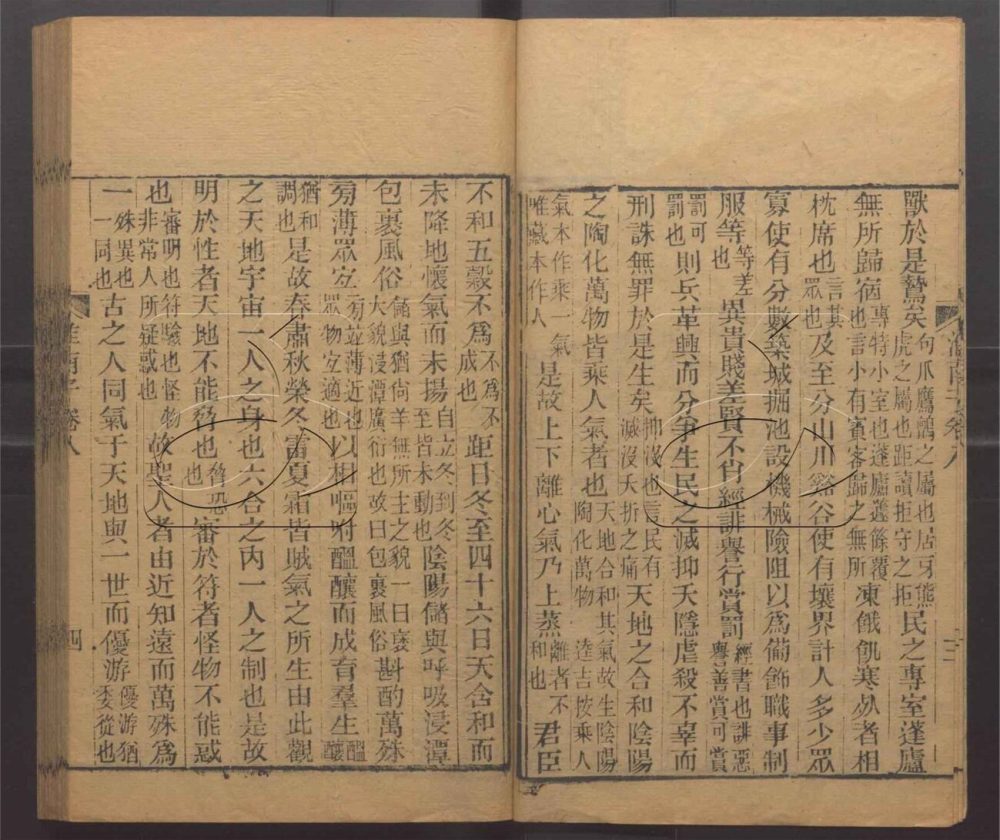 獸於是鷙矣句爪鷹鸇之屬也居牙熊虎之屬也距讀拒守之拒民之專室蓬廬
無所歸宿專特小室也蓬廬籧篨覆也言小有賓客歸之無所凍餓飢寒死者相
枕席也言其眾也及至分山川谿谷使有壤界計人多少眾
寡使有分數築城掘池設機械險阻以爲備飾職事制
服等等差也異貴賤差賢不肖經誹譽行賞罰經書也誹惡譽善賞可賞
罰可罰也則兵革興而分爭生民之滅抑夭隱虐殺不辜而
刑誅無罪於是生矣抑沒也言民有滅沒夭折之痛天地之合和陰陽
之陶化萬物皆乘人氣者也天地合和其氣故生陰陽陶化萬物 逵吉按乘人
氣本作乘一氣唯藏本作人是故上下離心氣乃上蒸離者不和也君臣
不和五穀不爲不爲不成也距日冬至四十六日天含和而
未降地懷氣而未揚自立冬到冬至皆未動也陰陽儲與呼吸浸潭
包裹風俗儲與猶尙羊無所主之貌一曰裒大貌浸潭廣衍也故曰包裹風俗斟酌萬殊
旁薄眾宜旁並薄近也眾物宜適也以相嘔咐醞釀而成育羣生醞釀
猶和調也是故春肅秋榮冬雷夏霜皆賊氣之所生由此觀
之天地宇宙一人之身也六合之內一人之制也是故
明於性者天地不能脅也脅恐也審於符者怪物不能惑
也審明也符驗也怪物非常人所疑惑也故聖人者由近知遠而萬殊爲
一殊異也一同也古之人同氣于天地與一世而優游優游猶委從也
淮南子卷八
四